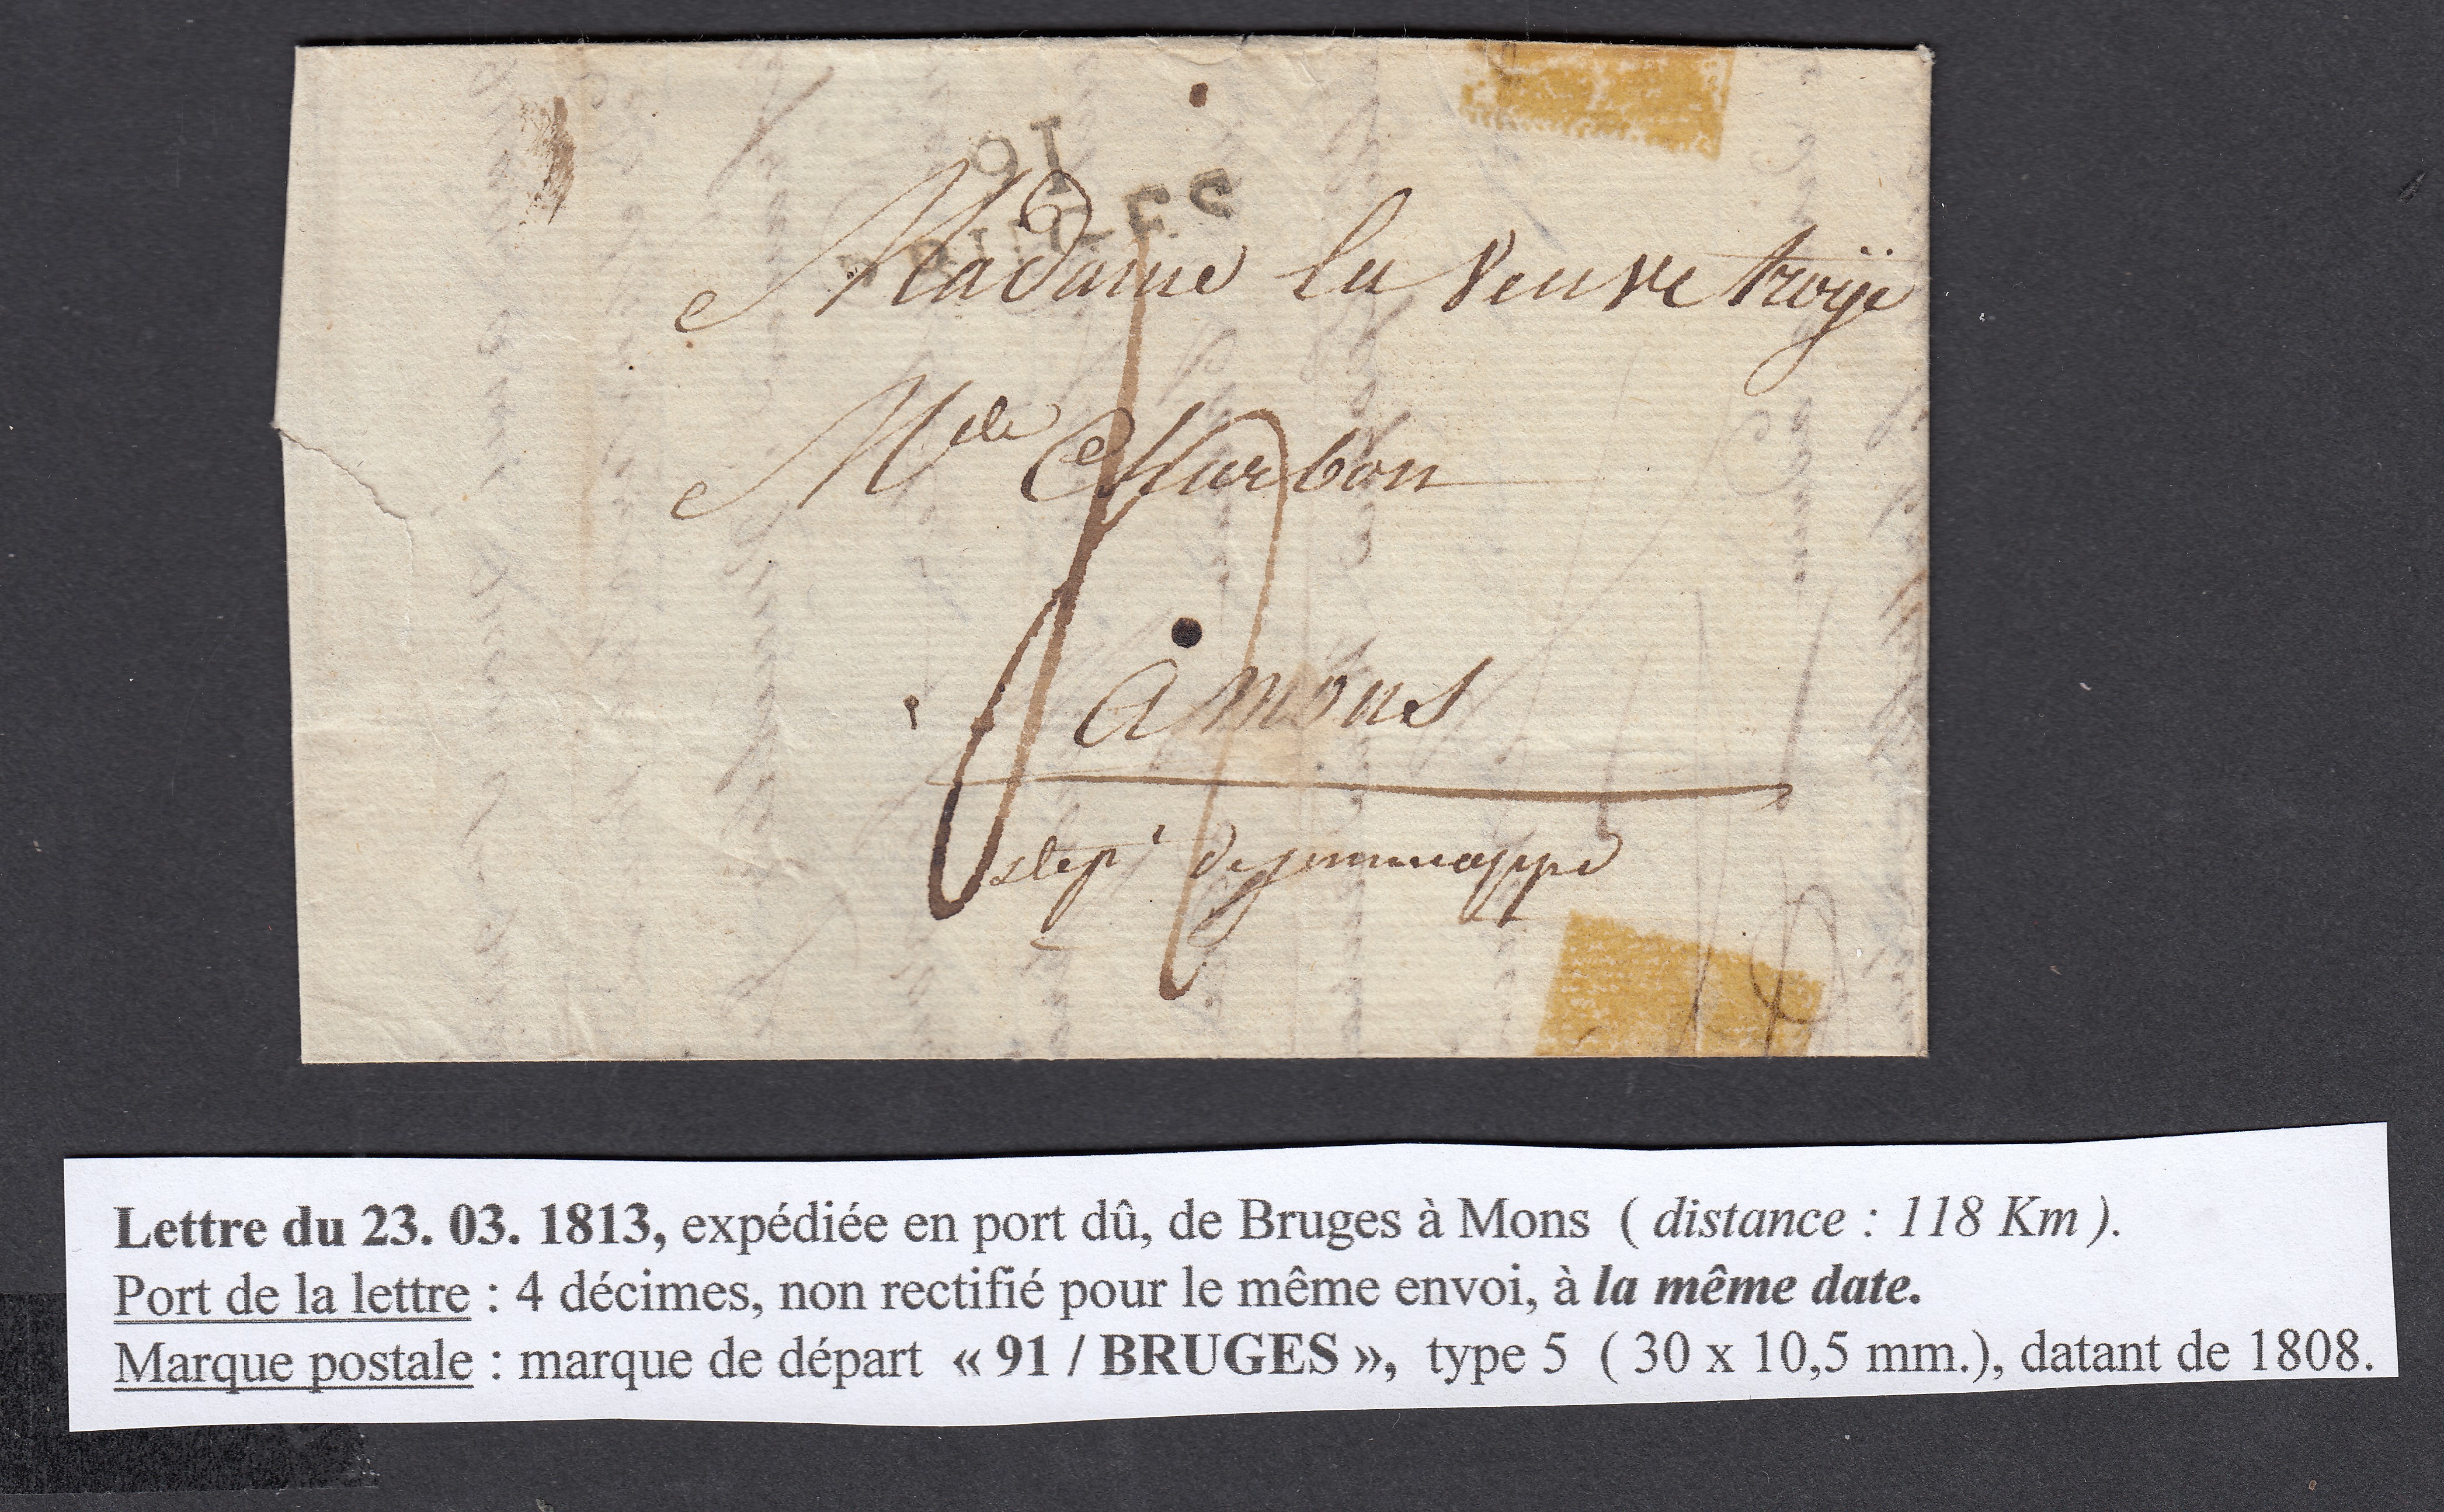 91
BRUGES
Madame la veuve troÿe
Mde Charbon
a mons
4
dept de jemmappe
Lettre du 23. 03. 1813, expédiée en port dû, de Bruges à Mons ( distance : 118 Km ).
Port de la lettre : 4 décimes, non rectifié pour le même envoi, à la même date.
Marque postale : marque de départ « 91 / BRUGES », type 5 ( 30 x 10,5 mm.), datant de 1808.